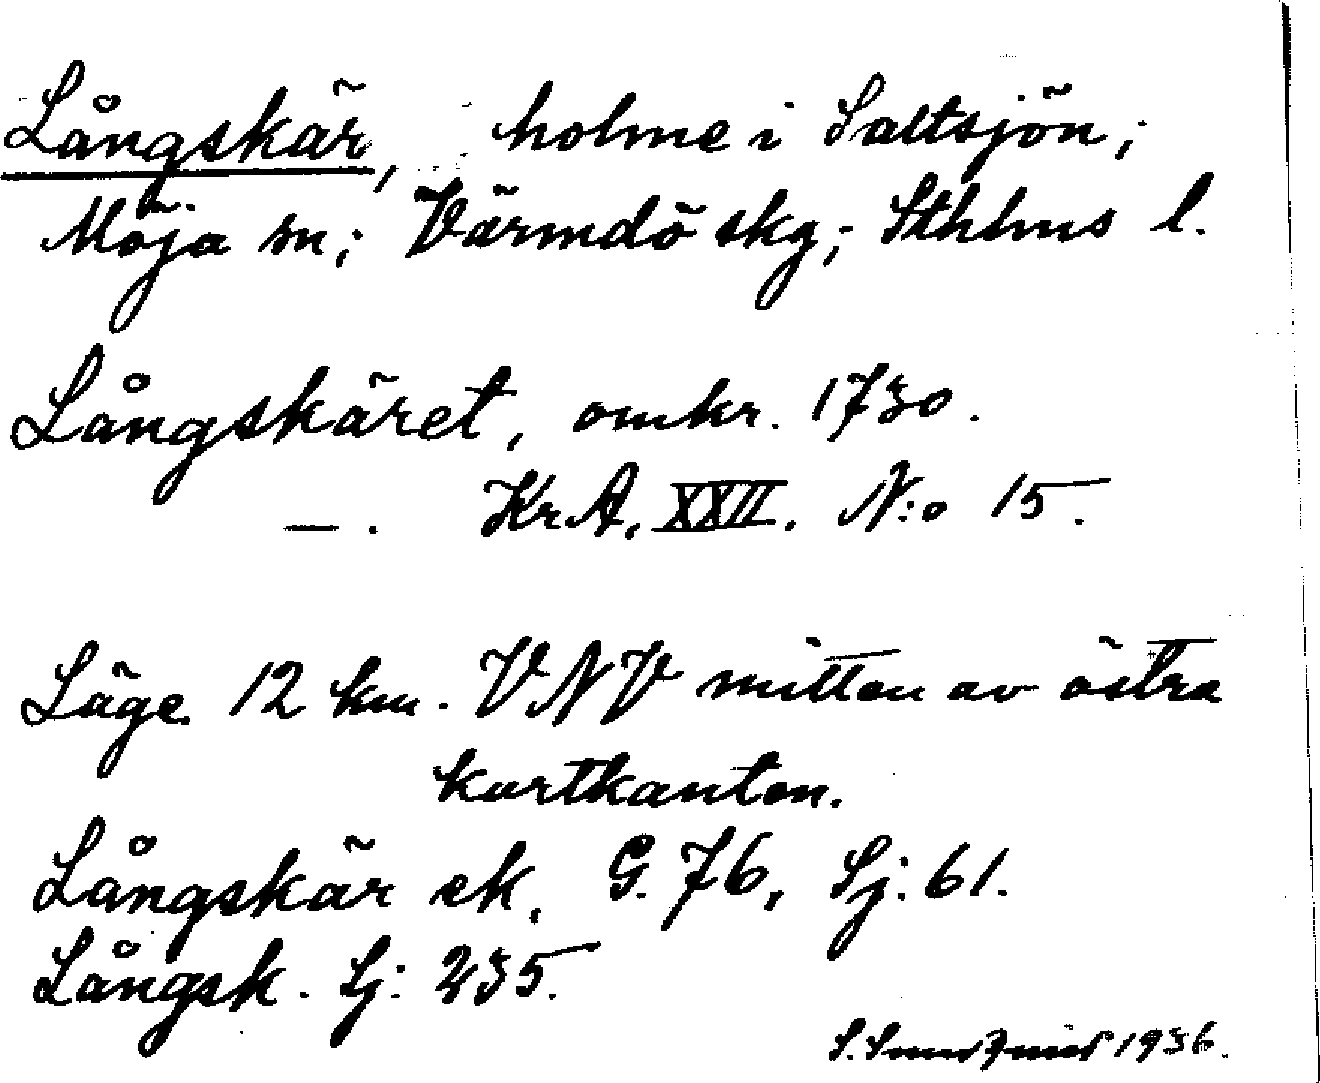 Långskär, holme i Saltsjön;
Möja sn; Värmdö skg; Sthlms l.
Långskäret, omkr. 1730.
—. Kr.A. XXII. N:o 15.
Läge 12 km. VNV mitten av östra
kartkanten.
Långskär ek. G. 76, Sj: 61.
Långsk. Sj: 235.
S. 1936.